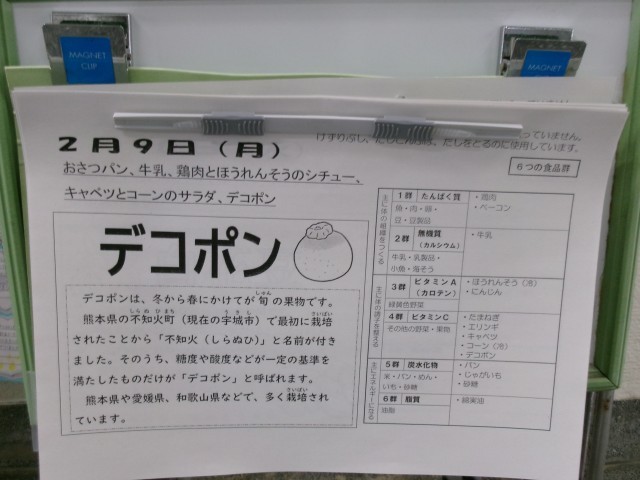 MAGNET
CLIP
MAGNET
2月9日（月）
おさつパン、牛乳、鶏肉とほうれんそうのシチュー、
キャベツとコーンのサラダ、デコポン
っていません。
だしをとるのに使用しています。
6つの食品群
デコポン
デコポンは、冬から春にかけてが旬の果物です。
しゅん
熊本県の不知火町（現在の宇城市）で最初に栽培
しらぬひまち
うきし
さいばい
されたことから「不知火（しらぬひ）」と名前が付き
ました。そのうち、糖度や酸度などが一定の基準を
満たしたものだけが「デコポン」と呼ばれます。
熊本県や愛媛県、和歌山県などで、多く栽培され
さいばい
ています。
主に体の組織をつくる
1群 たんぱく質
魚・肉・卵・
豆・豆製品
・鶏肉
・ベーコン
2群 無機質
（カルシウム）
牛乳・乳製品・
小魚・海そう
・牛乳
主に体の調子を整える
3群 ビタミンA
（カロテン）
緑黄色野菜
・ほうれんそう（冷）
・にんじん
4群 ビタミンC
その他の野菜・果物
・たまねぎ
・エリンギ
・キャベツ
・コーン（冷）
・デコポン
主にエネルギーになる
5群 炭水化物
米・パン・めん・
いも・砂糖
・パン
・じゃがいも
・砂糖
6群 脂質
油脂
・綿実油